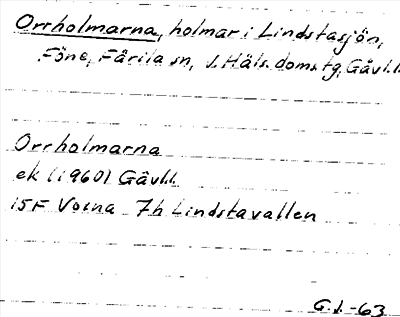 Orrholmarna, holmar i Lindstasjön,
Föne, Färila sn, v. Häls. domstg, Gävl.l.
Orrholmarna
ek (1960) Gävl.l.
15F Voxna 7h Lindstavallen
G.J.-63